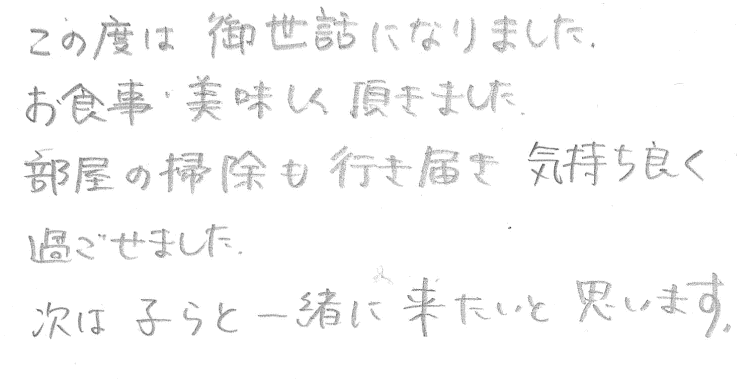 この度は御世話になりました.
お食事・美味しく頂きました.
部屋の掃除も行き届き気持ち良く
過ごせました.
次は子らと一緒に来たいと思います.